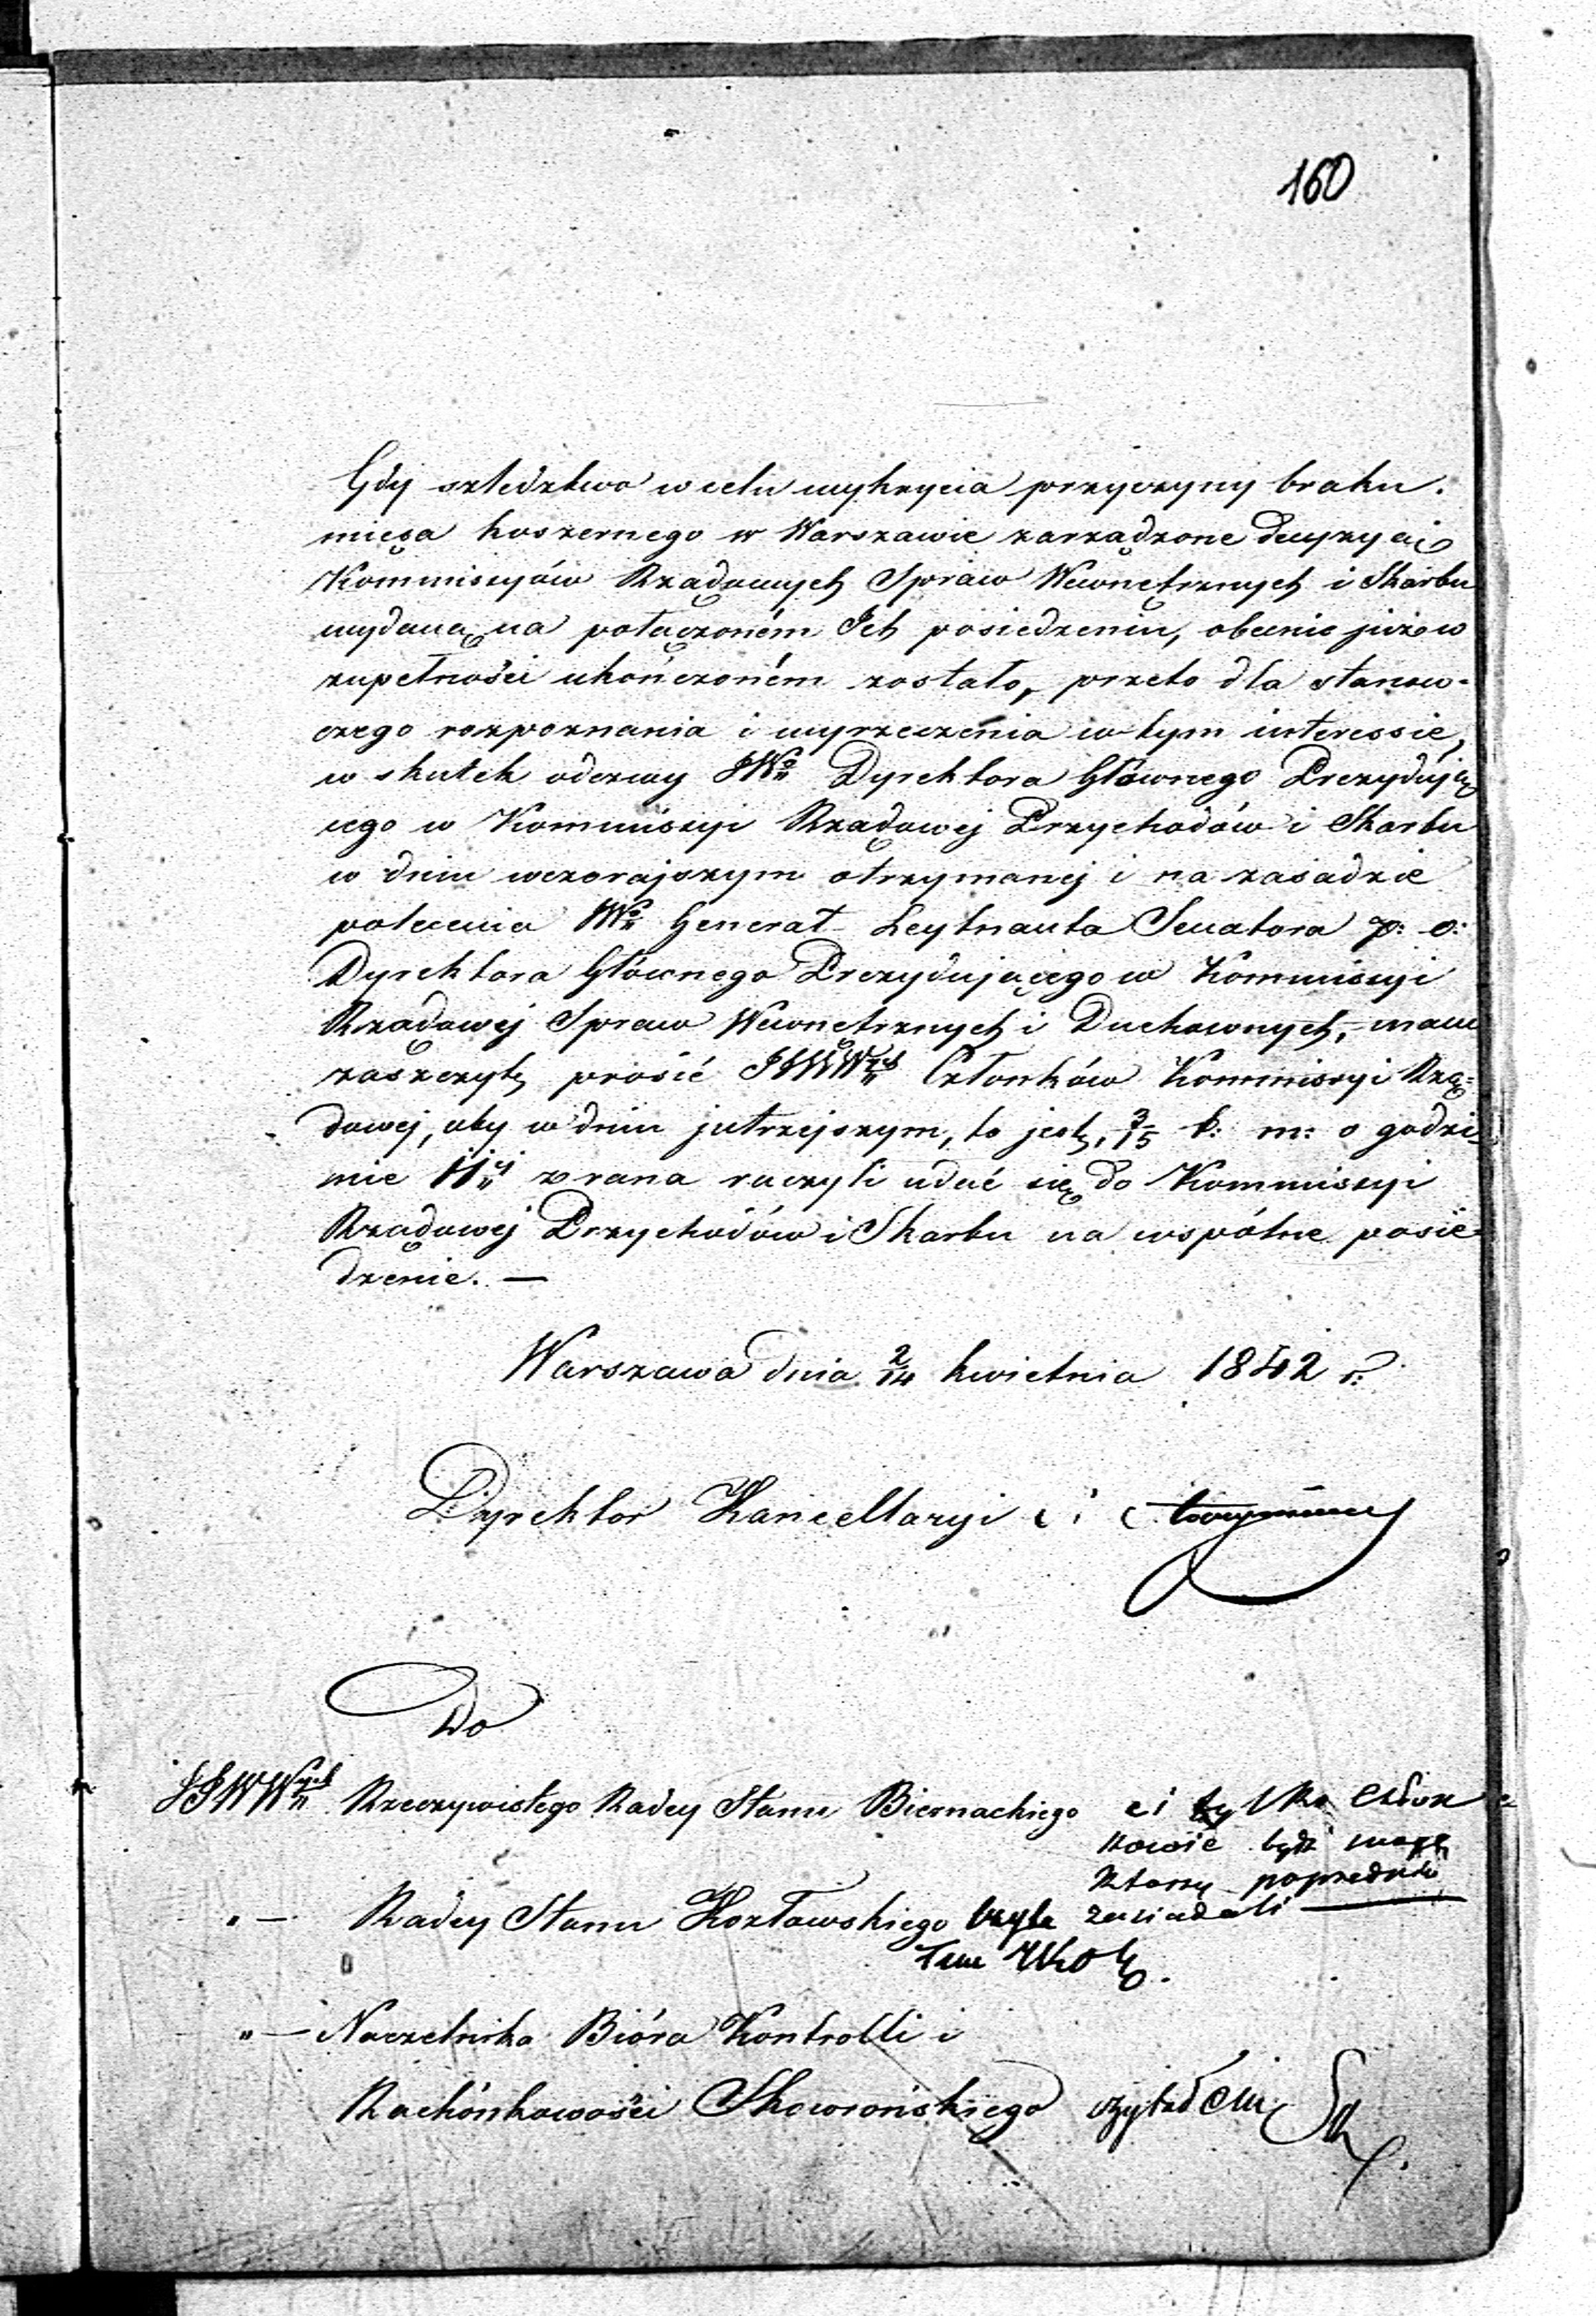 160
Gdy szledztwo w celu wykrycia przyczyny braku
mięsa koszernego w Warszawie zarządzone decyzyą
Kommissyów Rządowych Spraw Wewnętrznych i Skarbu
wydaną na połączoném Ich posiedzeniu, obecnie już w
zupełności ukończoném zostało, przeto dla stanow-
czego rozpoznania i wyrzeczenia w tym interessie,
w skutek odezwy JWo Dyrektora Głównego Prezydują
cego w Kommissyi Rządowej Przychodów i Skarbu
w dniu wczorajszym otrzymanej i na zasadzie
polecenia JWo Generał Leytnanta Senatora p: o:
Dyrektora Głównego Prezydującego w Kommissyi
Rządowej Spraw Wewnętrznych i Duchownych, mam
zaszczyt, prosić JWWnych Członków Kommissyi Rzą-
dowej, aby w dniu jutrzejszym, to jest, 3/15 b: m: o godzi-
nie 11ej z rana raczyli udać się do Kommissyi
Rządowej Przychodów i Skarbu na wspólne posie-
dzenie. —
Warszawa dnia 2/14 kwietnia 1842 r.
Dyrektor Kancellaryi
Do
JJWWnych Rzeczywistego Radcy Stanu Biernackiego ci tylko Człon
kowie być mogą
którzy poprzednio
"— Radcy Stanu Kozłowskiego zasiadali —
"— Naczelnika Bióra Kontrolli i
Rachónkowości Skowrońskiego czytałem